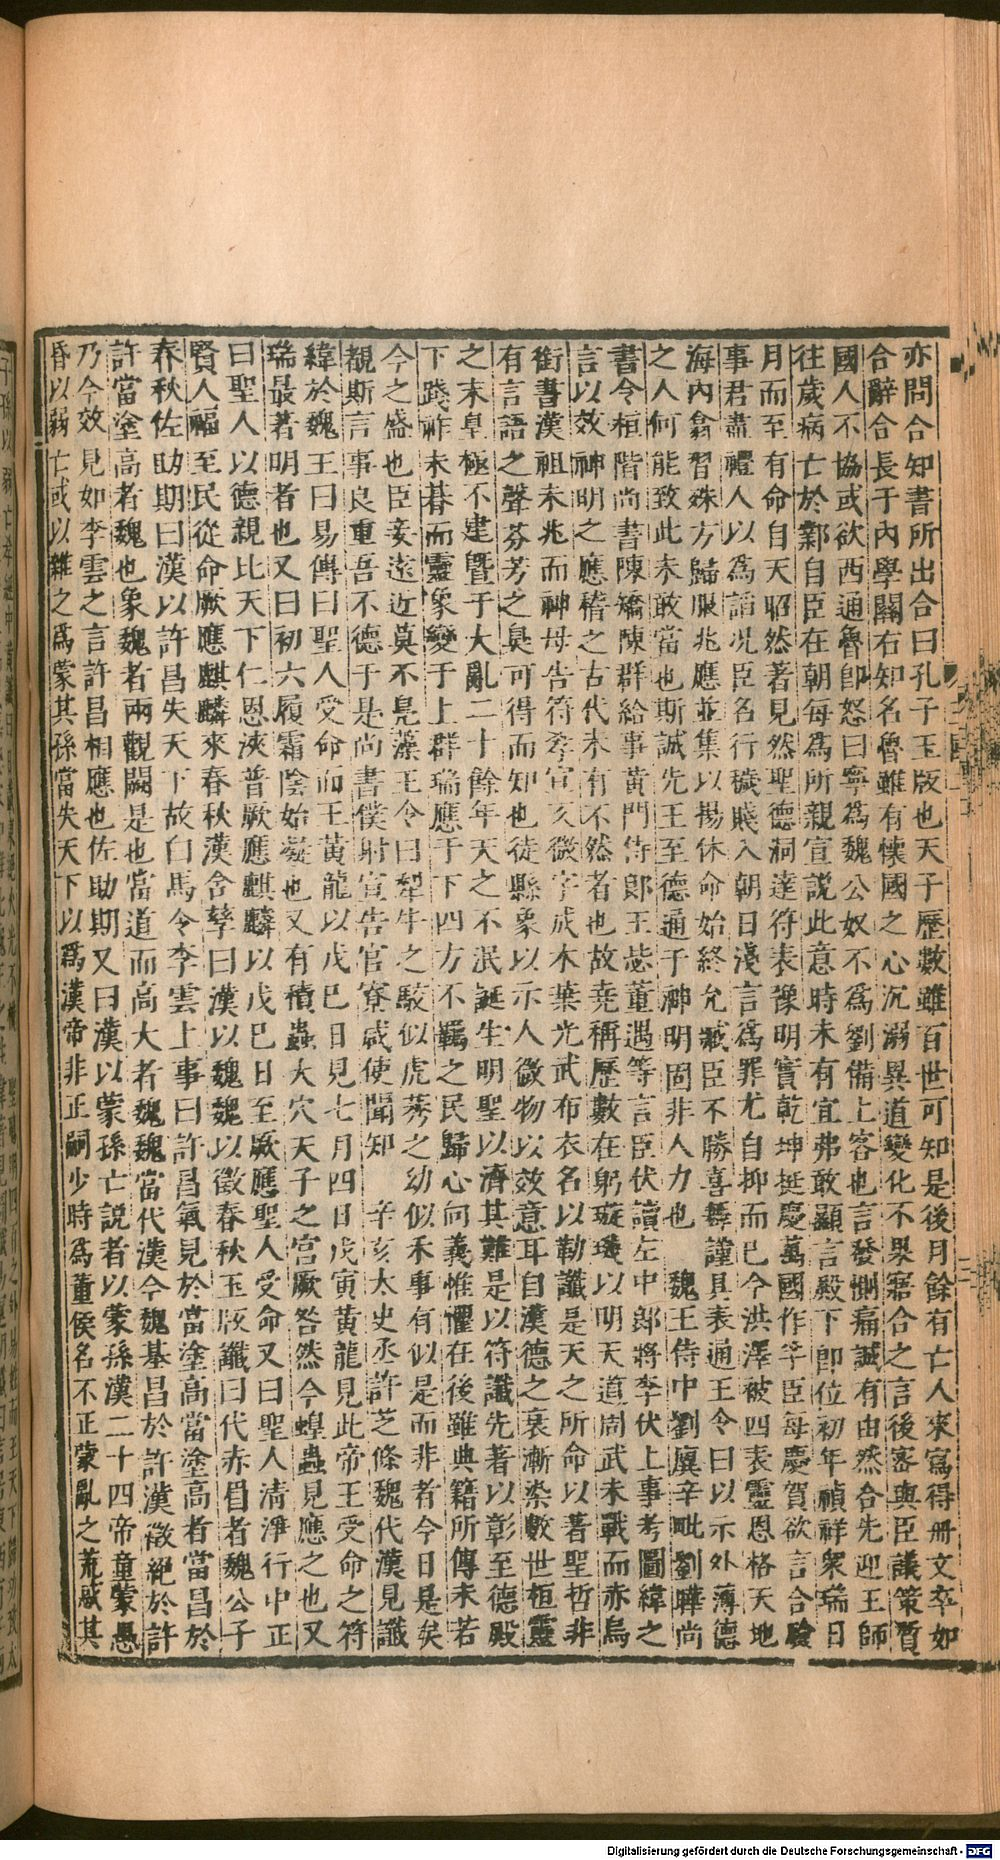 亦問合知書所出合曰孔子玉版也天子歷數雖百世可知是後月餘有亡人來寫得册文卒如
合辭合長于內學關右知名魯雖有懷國之心沉溺異道變化不果寤合之言後密與臣議策質
國人不協或欲西通魯即怒曰寧爲魏公奴不爲劉備上客也言發惻痛誠有由然合先迎王師
往歲病亡於鄴自臣在朝每爲所親宣說此意時未有宜弗敢顯言殿下即位初年禎祥衆瑞日
月而至有命自天昭然著見然聖德洞達符表豫明實乾坤挺慶萬國作孚臣每慶賀欲言合驗
事君盡禮人以爲諂況臣名行穢賤入朝日淺言爲罪尤自抑而已今洪澤被四表靈恩格天地
海內翕習殊方歸服兆應並集以揚休命始終允臧臣不勝喜舞謹具表通王令曰以示外薄德
之人何能致此未敢當也斯誠先王至德通于神明固非人力也　魏王侍中劉廙辛毗劉曄尚
書令桓階尚書陳矯陳群給事黃門侍郎王毖董遇等言臣伏讀左中郎將李伏上事考圖緯之
言以效神明之應稽之古代未有不然者也故堯稱歷數在躬璇璣以明天道周武未戰而赤烏
銜書漢祖未兆而神母告符孝宣仄微字成木葉光武布衣名以勒讖是天之所命以著聖哲非
有言語之聲芬芳之臭可得而知也徒縣象以示人微物以效意耳自漢德之衰漸染數世桓靈
之末皇極不建曁于大亂二十餘年天之不泯誕生明聖以濟其難是以符讖先著以彰至德殿
下踐祚未朞而靈象變于上群瑞應于下四方不羈之民歸心向義惟懼在後雖典籍所傳未若
今之盛也臣妾遠近莫不鳧藻王令曰犂牛之駮似虎莠之幼似禾事有似是而非者今日是矣
覩斯言事良重吾不德于是尚書僕射宣告官寮咸使聞知　辛亥太史丞許芝條魏代漢見讖
緯於魏王曰易傳曰聖人受命而王黃龍以戊巳日見七月四日戊寅黃龍見此帝王受命之符
瑞最著明者也又曰初六履霜陰始凝也又有積蟲大穴天子之宮厥咎然今蝗蟲見應之也又
曰聖人以德親比天下仁恩浹普厥應麒麟以戊巳日至厥應聖人受命又曰聖人清淨行中正
賢人福至民從命厥應麒麟來春秋漢含孳曰漢以魏魏以徵春秋玉版讖曰代赤眉者魏公子
春秋佐助期曰漢以許昌失天下故白馬令李雲上事曰許昌氣見於當塗高當塗高者當昌於
許當塗高者魏也象魏者兩觀闕是也當道而高大者魏魏當代漢今魏基昌於許漢徵絕於許
乃今效見如李雲之言許昌相應也佐助期又曰漢以蒙孫亡説者以蒙孫漢二十四帝童蒙愚
昏以弱亡或以雜之爲蒙其孫當失天下以爲漢帝非正嗣少時爲董侯名不正蒙亂之荒惑其
Digitalisierung gefördert durch die Deutsche Forschungsgemeinschaft - DFG